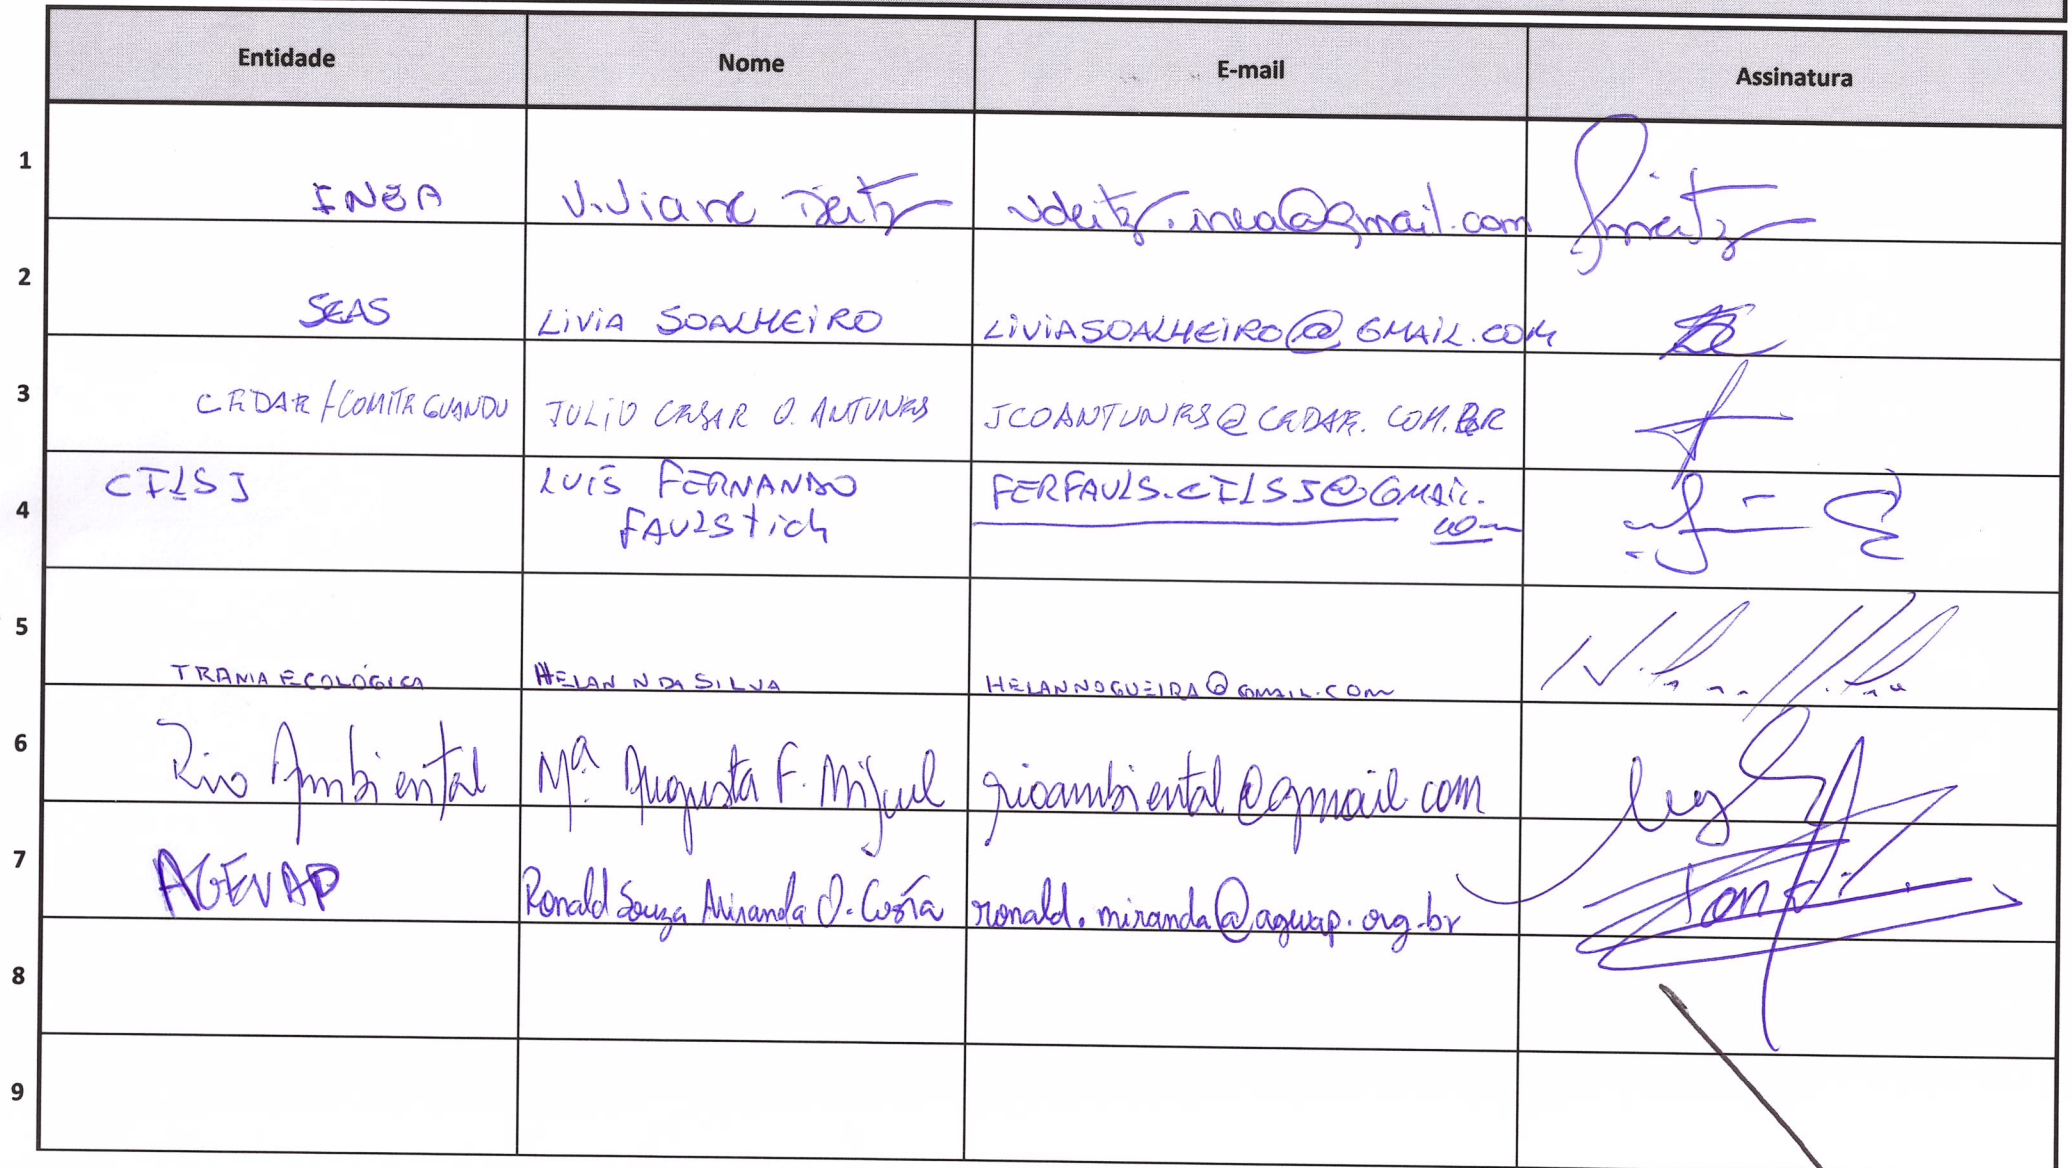 Entidade Nome E-mail Assinatura
1 INEA Viviane Deitz vdeitz.inea@gmail.com
2 SEAS LIVIA SOALHEIRO LIVIASOALHEIRO@GMAIL.COM
3 CEDAE/COMITE GUANDU JULIO CESAR O. ANTUNES JCOANTUNES@CEDAE.COM.BR
4 CILSJ LUÍS FERNANDO FERFAULS.CILSJ@GMAIL.
FAULStich com
5 TRAMA ECOLÓGICA HELAN N DA SILVA HELANNOGUEIRA@GMAIL.COM
6 Rio Ambiental Mª Augusta F. Miguel rioambiental@gmail.com
7 AGEVAP Ronald Souza Miranda O. Costa ronald.miranda@agevap.org.br
8
9